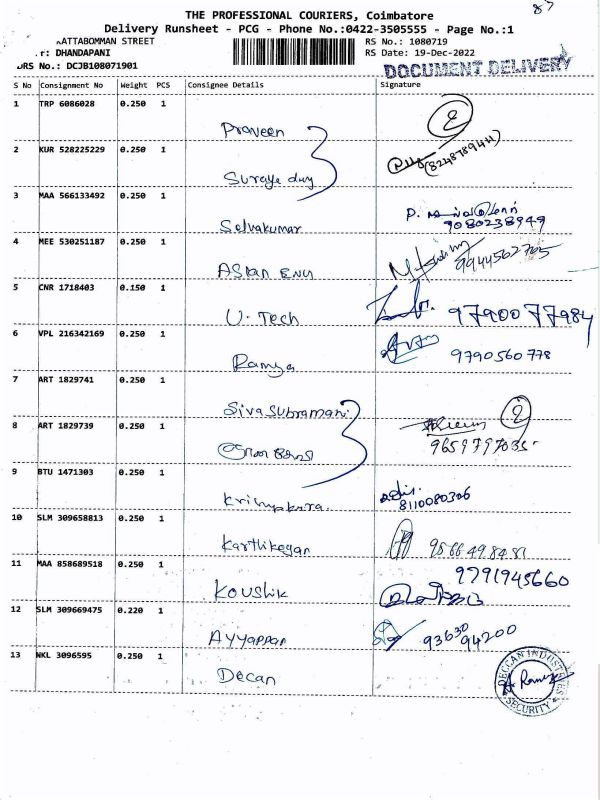 THE PROFESSIONAL COURIERS, Coimbatore
Delivery Runsheet - PCG - Phone No.:0422-3505555 - Page No.:1
KATTABOMMAN STREET
RS No.: 1080719
r: DHANDAPANI
RS Date: 19-Dec-2022
DRS No.: DCJB108071901
DOCUMENT DELIVERY
S No Consignment No Weight PCS Consignee Details Signature
1 TRP 6086028 0.250 1 Praveen
2 KUR 528225229 0.250 1 (8248789411)
3 MAA 566133492 0.250 1 Selvakumar 9080238949
4 MEE 530251187 0.250 1 Asian 9944562765
5 CNR 1718403 0.150 1 U. Tech 9790077984
6 VPL 216342169 0.250 1 Ramya 9790560778
7 ART 1829741 0.250 1 Siva Subramani
8 ART 1829739 0.250 1 9659797035
9 BTU 1471303 0.250 1 8110080306
10 SLM 309658813 0.250 1 Karthikeyan 9566498481
11 MAA 858689518 0.250 1 Koushik 9791945660
12 SLM 309669475 0.220 1 Ayyappan 9363094200
13 NKL 3096595 0.250 1 Decan
DECCAN INDUSTRIES
SECURITY